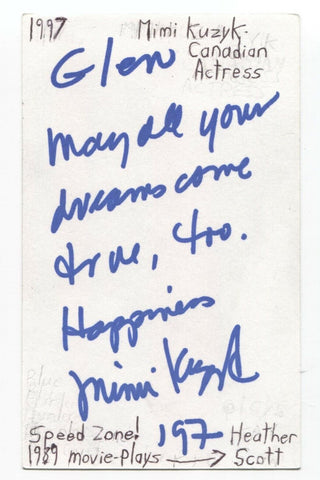 1997 Mimi Kuzyk.
Canadian
Actress
Glen
May all your
dreams come
true, too.
Happiness
Mimi Kuzyk
197
Speed Zone! Heather
1989 movie-plays → Scott